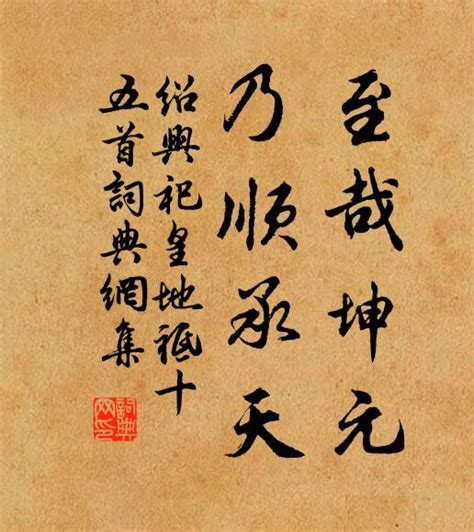 至哉坤元
乃順承天
紹興祀皇地祗十
五首詞典網集
詞典网印